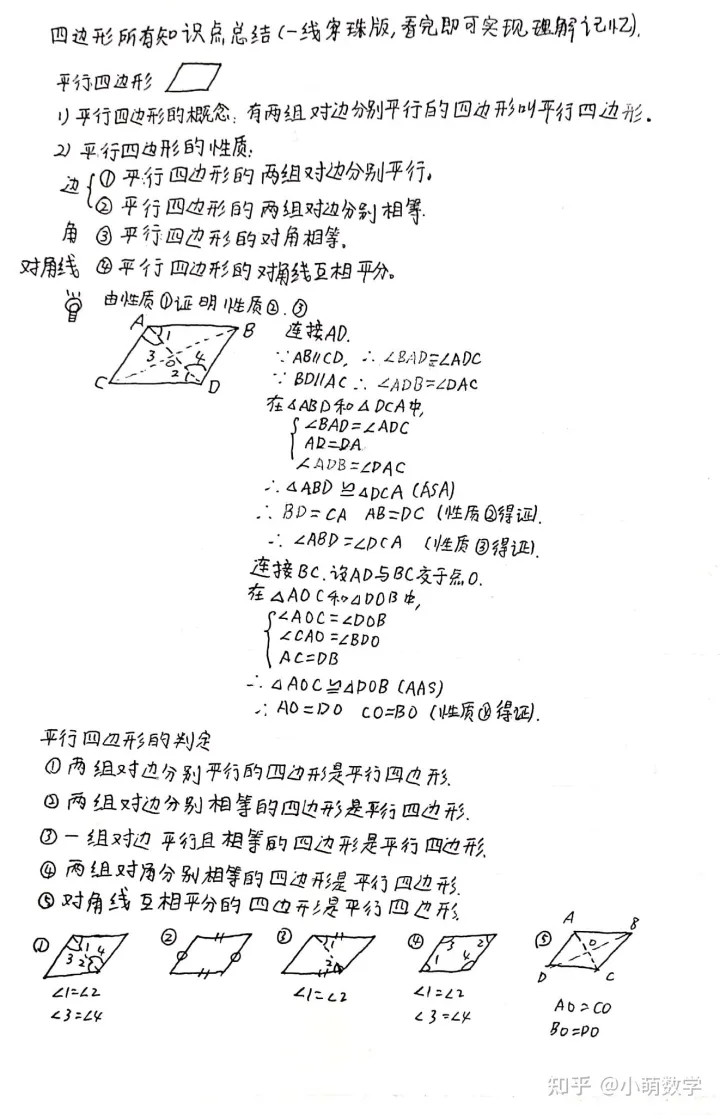 四边形所有知识点总结(一线穿珠版,看完即可实现理解记忆).
平行四边形
1) 平行四边形的概念:有两组对边分别平行的四边形叫平行四边形.
2) 平行四边形的性质:
边 ① 平行四边形的两组对边分别平行。
② 平行四边形的两组对边分别相等.
角 ③ 平行四边形的对角相等.
对角线 ④ 平行四边形的对角线互相平分。
由性质①证明性质②.③
A B C D O 1 2 3 4
连接AD.
∵AB∥CD, ∴∠BAD=∠ADC
∵BD∥AC ∴∠ADB=∠DAC
在△ABD和△DCA中,
∠BAD=∠ADC
AD=DA
∠ADB=∠DAC
∴△ABD≌△DCA (ASA)
∴BD=CA AB=DC (性质②得证).
∴∠ABD=∠DCA (性质③得证).
连接BC.设AD与BC交于点O.
在△AOC和△DOB中,
∠AOC=∠DOB
∠CAO=∠BDO
AC=DB
∴△AOC≌△DOB (AAS)
∴AO=DO CO=BO (性质④得证).
平行四边形的判定
① 两组对边分别平行的四边形是平行四边形.
② 两组对边分别相等的四边形是平行四边形.
③ 一组对边平行且相等的四边形是平行四边形.
④ 两组对角分别相等的四边形是平行四边形.
⑤ 对角线互相平分的四边形是平行四边形.
① 1 4 3 2 ② ③ 1 2 ④ 3 2 1 4 ⑤ A B O D C
∠1=∠2 ∠1=∠2 ∠1=∠2 AO=CO
∠3=∠4 ∠3=∠4 BO=DO
知乎 @小萌数学